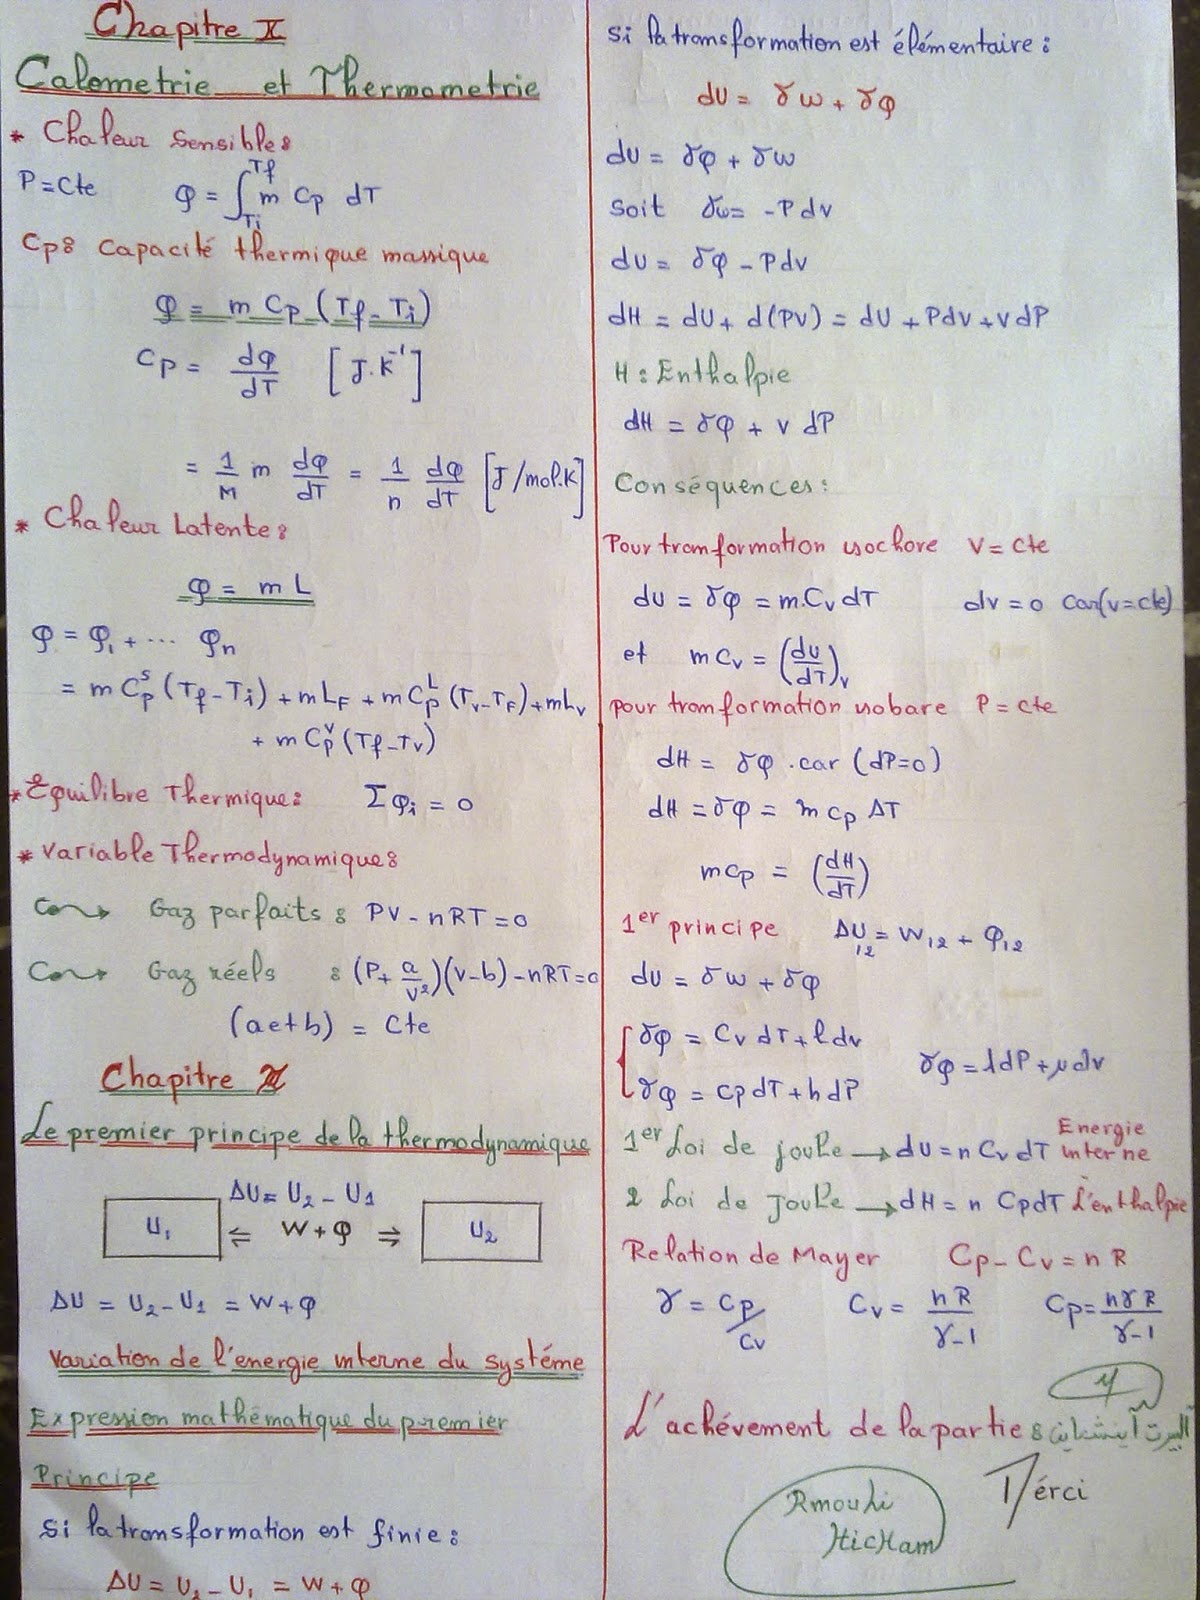 Chapitre II
Calometrie et Thermometrie
* Chaleur Sensible :
P = Cte    Q = ∫_Ti^Tf m Cp dT
Cp : Capacité thermique massique
Q = m Cp (Tf - Ti)
Cp = dQ/dT [J.K⁻¹]
= 1/M m dQ/dT = 1/n dQ/dT [J/mol.K]
* Chaleur Latente :
Q = m L
Q = Q₁ + ... Qn
= m Cp^S (Tf - Ti) + mL_F + m Cp^L (Tv - T_F) + mLv
+ m Cp^V (Tf - Tv)
* Equilibre Thermique : Σ Qi = 0
* Variable Thermodynamique :
Gaz parfaits : PV - nRT = 0
Gaz réels : (P + a/v²)(v - b) - nRT = 0
(a et b) = Cte
Chapitre
Le premier principe de la thermodynamique
ΔU = U₂ - U₁
U₁ ⇐ W + Q ⇒ U₂
ΔU = U₂ - U₁ = W + Q
Variation de l'energie interne du systéme
Expression mathématique du premier
Principe
Si la transformation est finie :
ΔU = U₂ - U₁ = W + Q
Si la transformation est élémentaire :
dU = δw + δQ
dU = δQ + δw
Soit δw = -Pdv
dU = δQ - Pdv
dH = dU + d(PV) = dU + Pdv + vdP
H : Enthalpie
dH = δQ + v dP
Conséquences :
Pour tranformation isochore V = cte
dU = δQ = m.Cv dT    dv = 0 car (v = cte)
et m Cv = (dU/dT)v
pour tranformation isobare P = cte
dH = δQ . car (dP = 0)
dH = δQ = m cp ΔT
m cp = (dH/dT)
1er principe    ΔU₁₂ = W₁₂ + Q₁₂
dU = δw + δQ
δQ = Cv dT + l dv
δQ = cp dT + h dP
δQ = λdP + μdv
1er Loi de joule → dU = n Cv dT Energie interne
2 Loi de Joule → dH = n CpdT L'enthalpie
Relation de Mayer    Cp - Cv = n R
γ = Cp/Cv    Cv = nR/γ-1    Cp = nγR/γ-1
L'achévement de la partie : آلبرت آينشتاين
Mérci
Rmouhi
HicHam